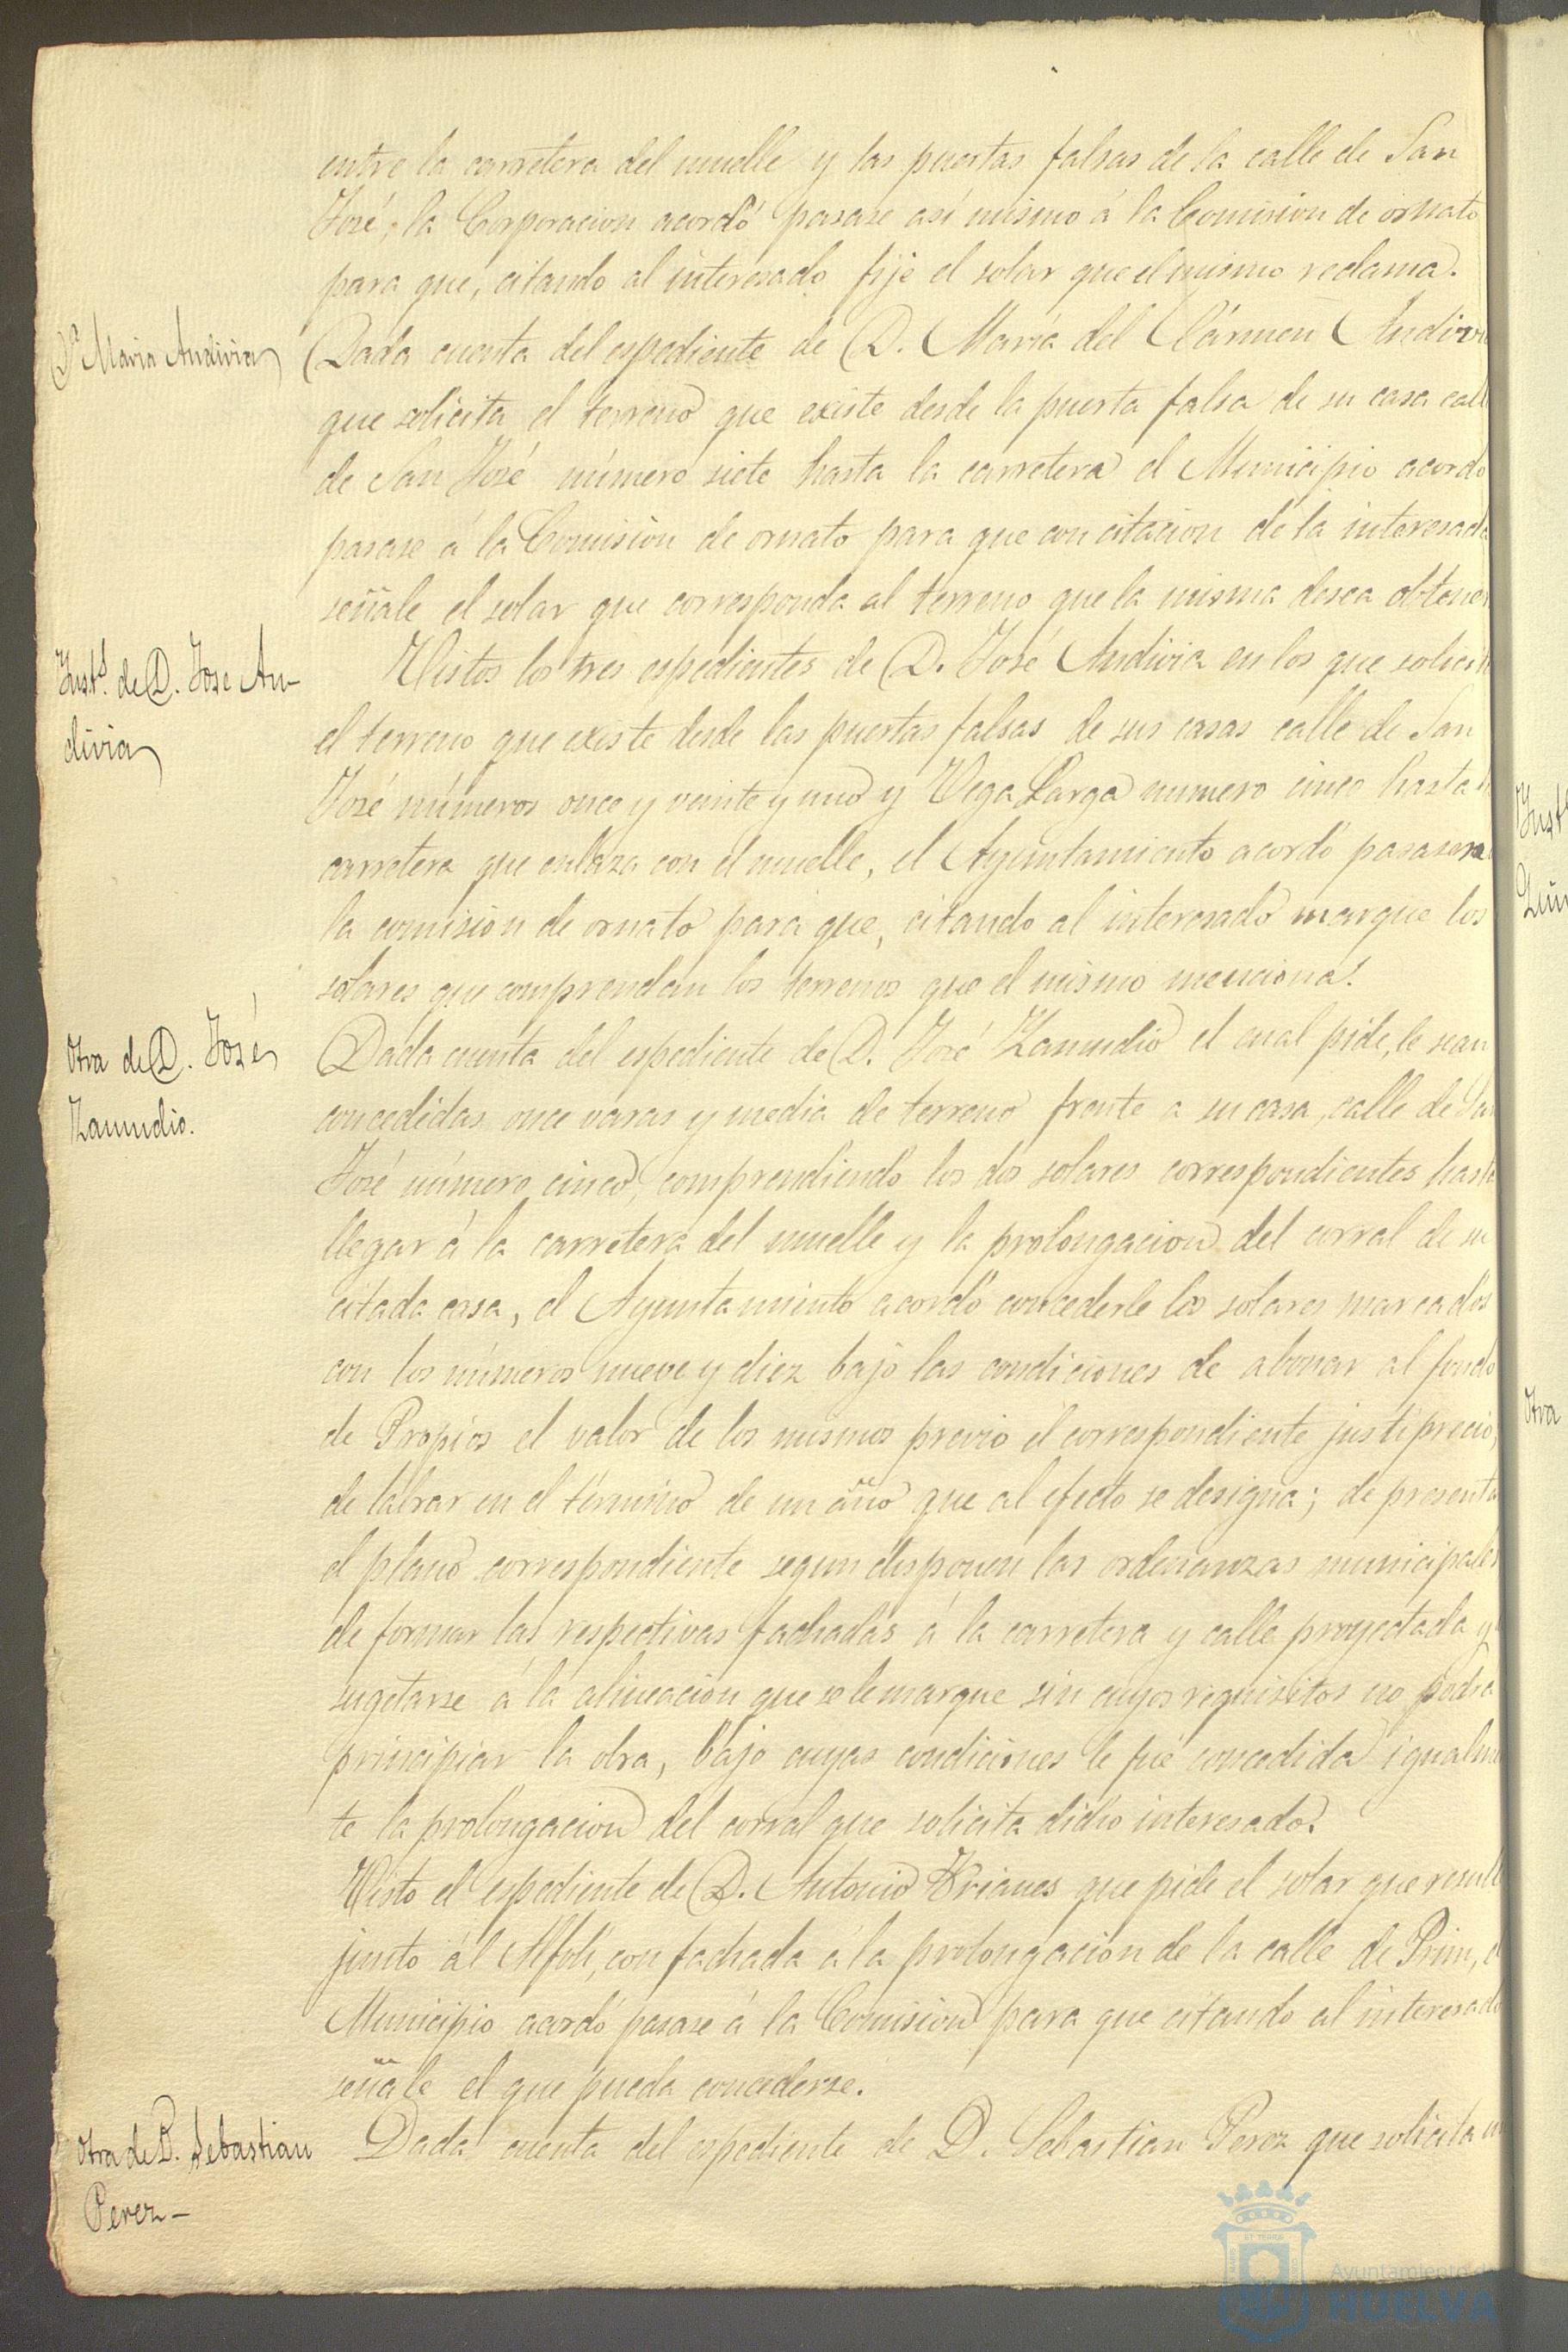 entre la carretera del muelle y las puertas falsas de la calle de San
José; la Corporacion acordó pasase así mismo á la Comision de ornato
para que, citando al interesado fije el solar que el mismo reclama.
Dª Maria Andivia
Dada cuenta del espediente de D. María del Cármen Andivi
que solicita el terreno que existe desde la puerta falsa de su casa call
de San José número siete hasta la carretera el Municipio acordo
pasase á la Comision de ornato para que con citacion de la interesada
señale el solar que corresponda al terreno que la misma desea obtener
Inst.s de D. Jose An-
divia
Vistos los tres espedientes de D. José Andivia en los que solicit
el terreno que existe desde las puertas falsas de sus casas calle de San
José números once y veinte y uno y Vega Larga numero cinco hasta
carretera que enlaza con el muelle, el Ayuntamiento acordó pasasen
la comision de ornato para que, citando al interesado marque los
solares que comprendan los terrenos que el mismo menciona.
Otra de D. José
Zamudio.
Dada cuenta del espediente de D. José Zamudio el cual pide, le sean
concedidas once varas y media de terreno frente a su casa, calle de San
José número cinco, comprendiendo los dos solares correspondientes hasta
llegar á la carretera del muelle y la prolongacion del corral de su
citada casa, el Ayuntamiento acordó concederle los solares marcados
con los números nueve y diez bajo las condiciones de abonar al fondo
de Propios el valor de los mismos previo el correspondiente justiprecio,
de labrar en el término de un año que al efecto se designa; de presenta
el plano correspondiente segun disponen las ordenanzas municipales
de formar las respectivas fachadas á la carretera y calle proyectada y
sugetarse á la alineacion que se le marque sin cuyos requisitos no podra
principiar la obra, bajo cuyas condiciones le fue concedida igualm
te la prolongacion del corral que solicita dicho interesado.
Visto el espediente de D. Antonio Brianes que pide el solar que result
junto al Alfolí, con fachada á la prolongacion de la calle de Prim, e
Municipio acordó pasase á la Comision para que citando al interesado
señale el que pueda concederse.
Otra de D. Sebastian
Perez -
Dada cuenta del espediente de D. Sebastian Perez que solicita un
Inst
Otra
Ayuntamiento de
HUELVA